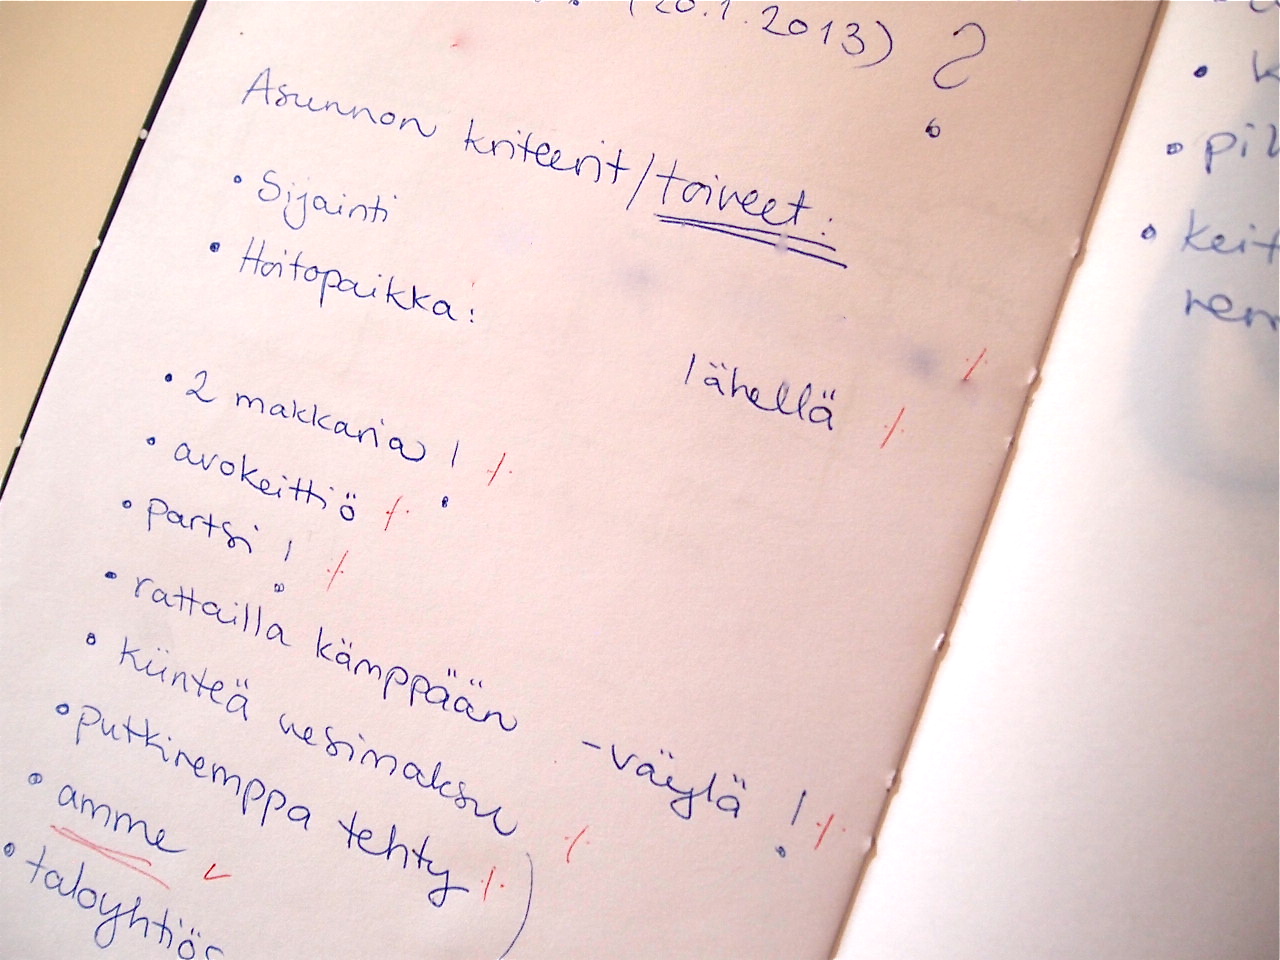 (20.1.2013) ?
Asunnon kriteerit/toiveet:
• Sijainti
• Hoitopaikka:
lähellä
• 2 makkaria!
• avokeittiö
• partsi!
• rattailla kämppään -väylä!
• kiinteä vesimaksu
• putkiremppa tehty
• amme
• taloyhtiös
• k
• pil
• keit
rem